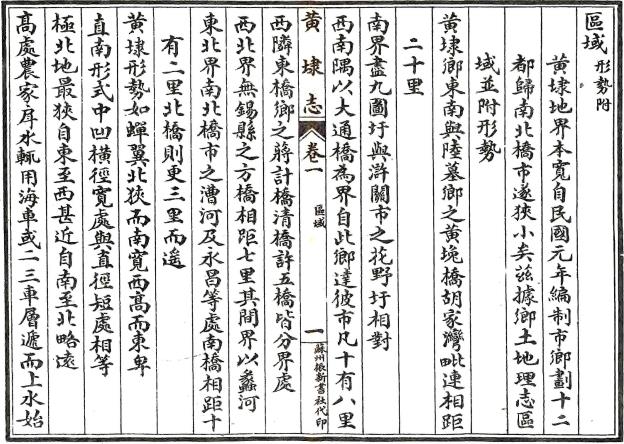 區域形勢附
黃埭地界本寬自民國元年編制市鄉劃十二
都歸南北橋市遂狹小矣茲據鄉土地理志區
域並附形勢
黃埭鄉東南與陸墓鄉之黃堍橋胡家灣毗連相距
二十里
南界盡九圖圩與滸關市之花野圩相對
西南隅以大通橋為界自此鄉達彼市凡十有八里
黃埭志 卷一 區域 一 蘇州振新書社代印
西隣東橋鄉之蔣計橋清橋許五橋皆分界處
西北界無錫縣之方橋相距七里其間界以蠡河
東北界南北橋市之漕河及永昌等處南橋相距十
有二里北橋則更三里而遙
黃埭形勢如蟬翼北狹而南寬西高而東卑
直南形式中凹橫徑寬處與直徑短處相等
極北地最狹自東至西甚近自南至北略遠
高處農家戽水輒用海車或二三車層遞而上水始